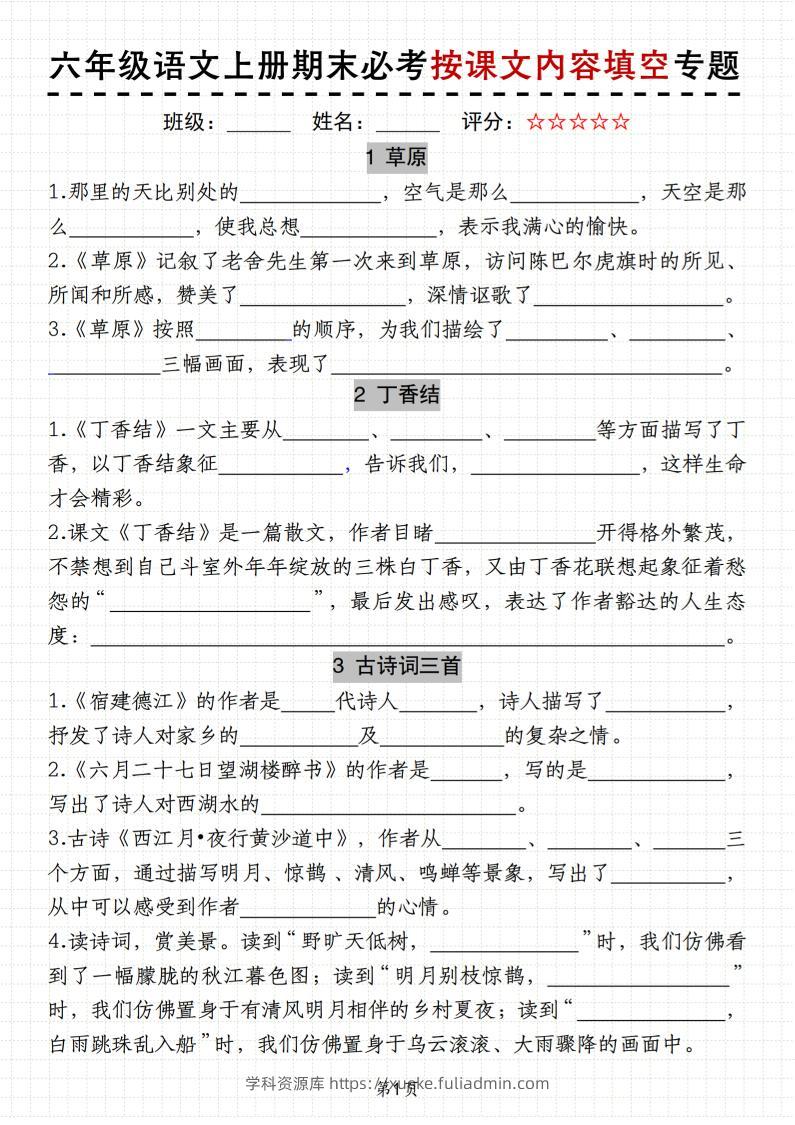 六年级语文上册期末必考按课文内容填空专题
班级：______ 姓名：______ 评分：☆☆☆☆☆
1 草原
1.那里的天比别处的____________，空气是那么___________，天空是那
么___________，使我总想____________，表示我满心的愉快。
2.《草原》记叙了老舍先生第一次来到草原，访问陈巴尔虎旗时的所见、
所闻和所感，赞美了______________，深情讴歌了________________。
3.《草原》按照________的顺序，为我们描绘了_________、________、
__________三幅画面，表现了__________________________________。
2 丁香结
1.《丁香结》一文主要从_______、________、________等方面描写了丁
香，以丁香结象征___________，告诉我们，______________，这样生命
才会精彩。
2.课文《丁香结》是一篇散文，作者目睹______________开得格外繁茂，
不禁想到自己斗室外年年绽放的三株白丁香，又由丁香花联想起象征着愁
怨的“_________________”，最后发出感叹，表达了作者豁达的人生态
度：______________________________________________________。
3 古诗词三首
1.《宿建德江》的作者是_____代诗人_______，诗人描写了__________，
抒发了诗人对家乡的__________及___________的复杂之情。
2.《六月二十七日望湖楼醉书》的作者是______，写的是____________，
写出了诗人对西湖水的______________________。
3.古诗《西江月•夜行黄沙道中》，作者从_______、_______、______三
个方面，通过描写明月、惊鹊、清风、鸣蝉等景象，写出了__________，
从中可以感受到作者____________的心情。
4.读诗词，赏美景。读到“野旷天低树，_____________”时，我们仿佛看
到了一幅朦胧的秋江暮色图；读到“明月别枝惊鹊，________________”
时，我们仿佛置身于有清风明月相伴的乡村夏夜；读到“_____________，
白雨跳珠乱入船”时，我们仿佛置身于乌云滚滚、大雨骤降的画面中。
学科资源库 https://xueke.fuliadmin.com
第1页